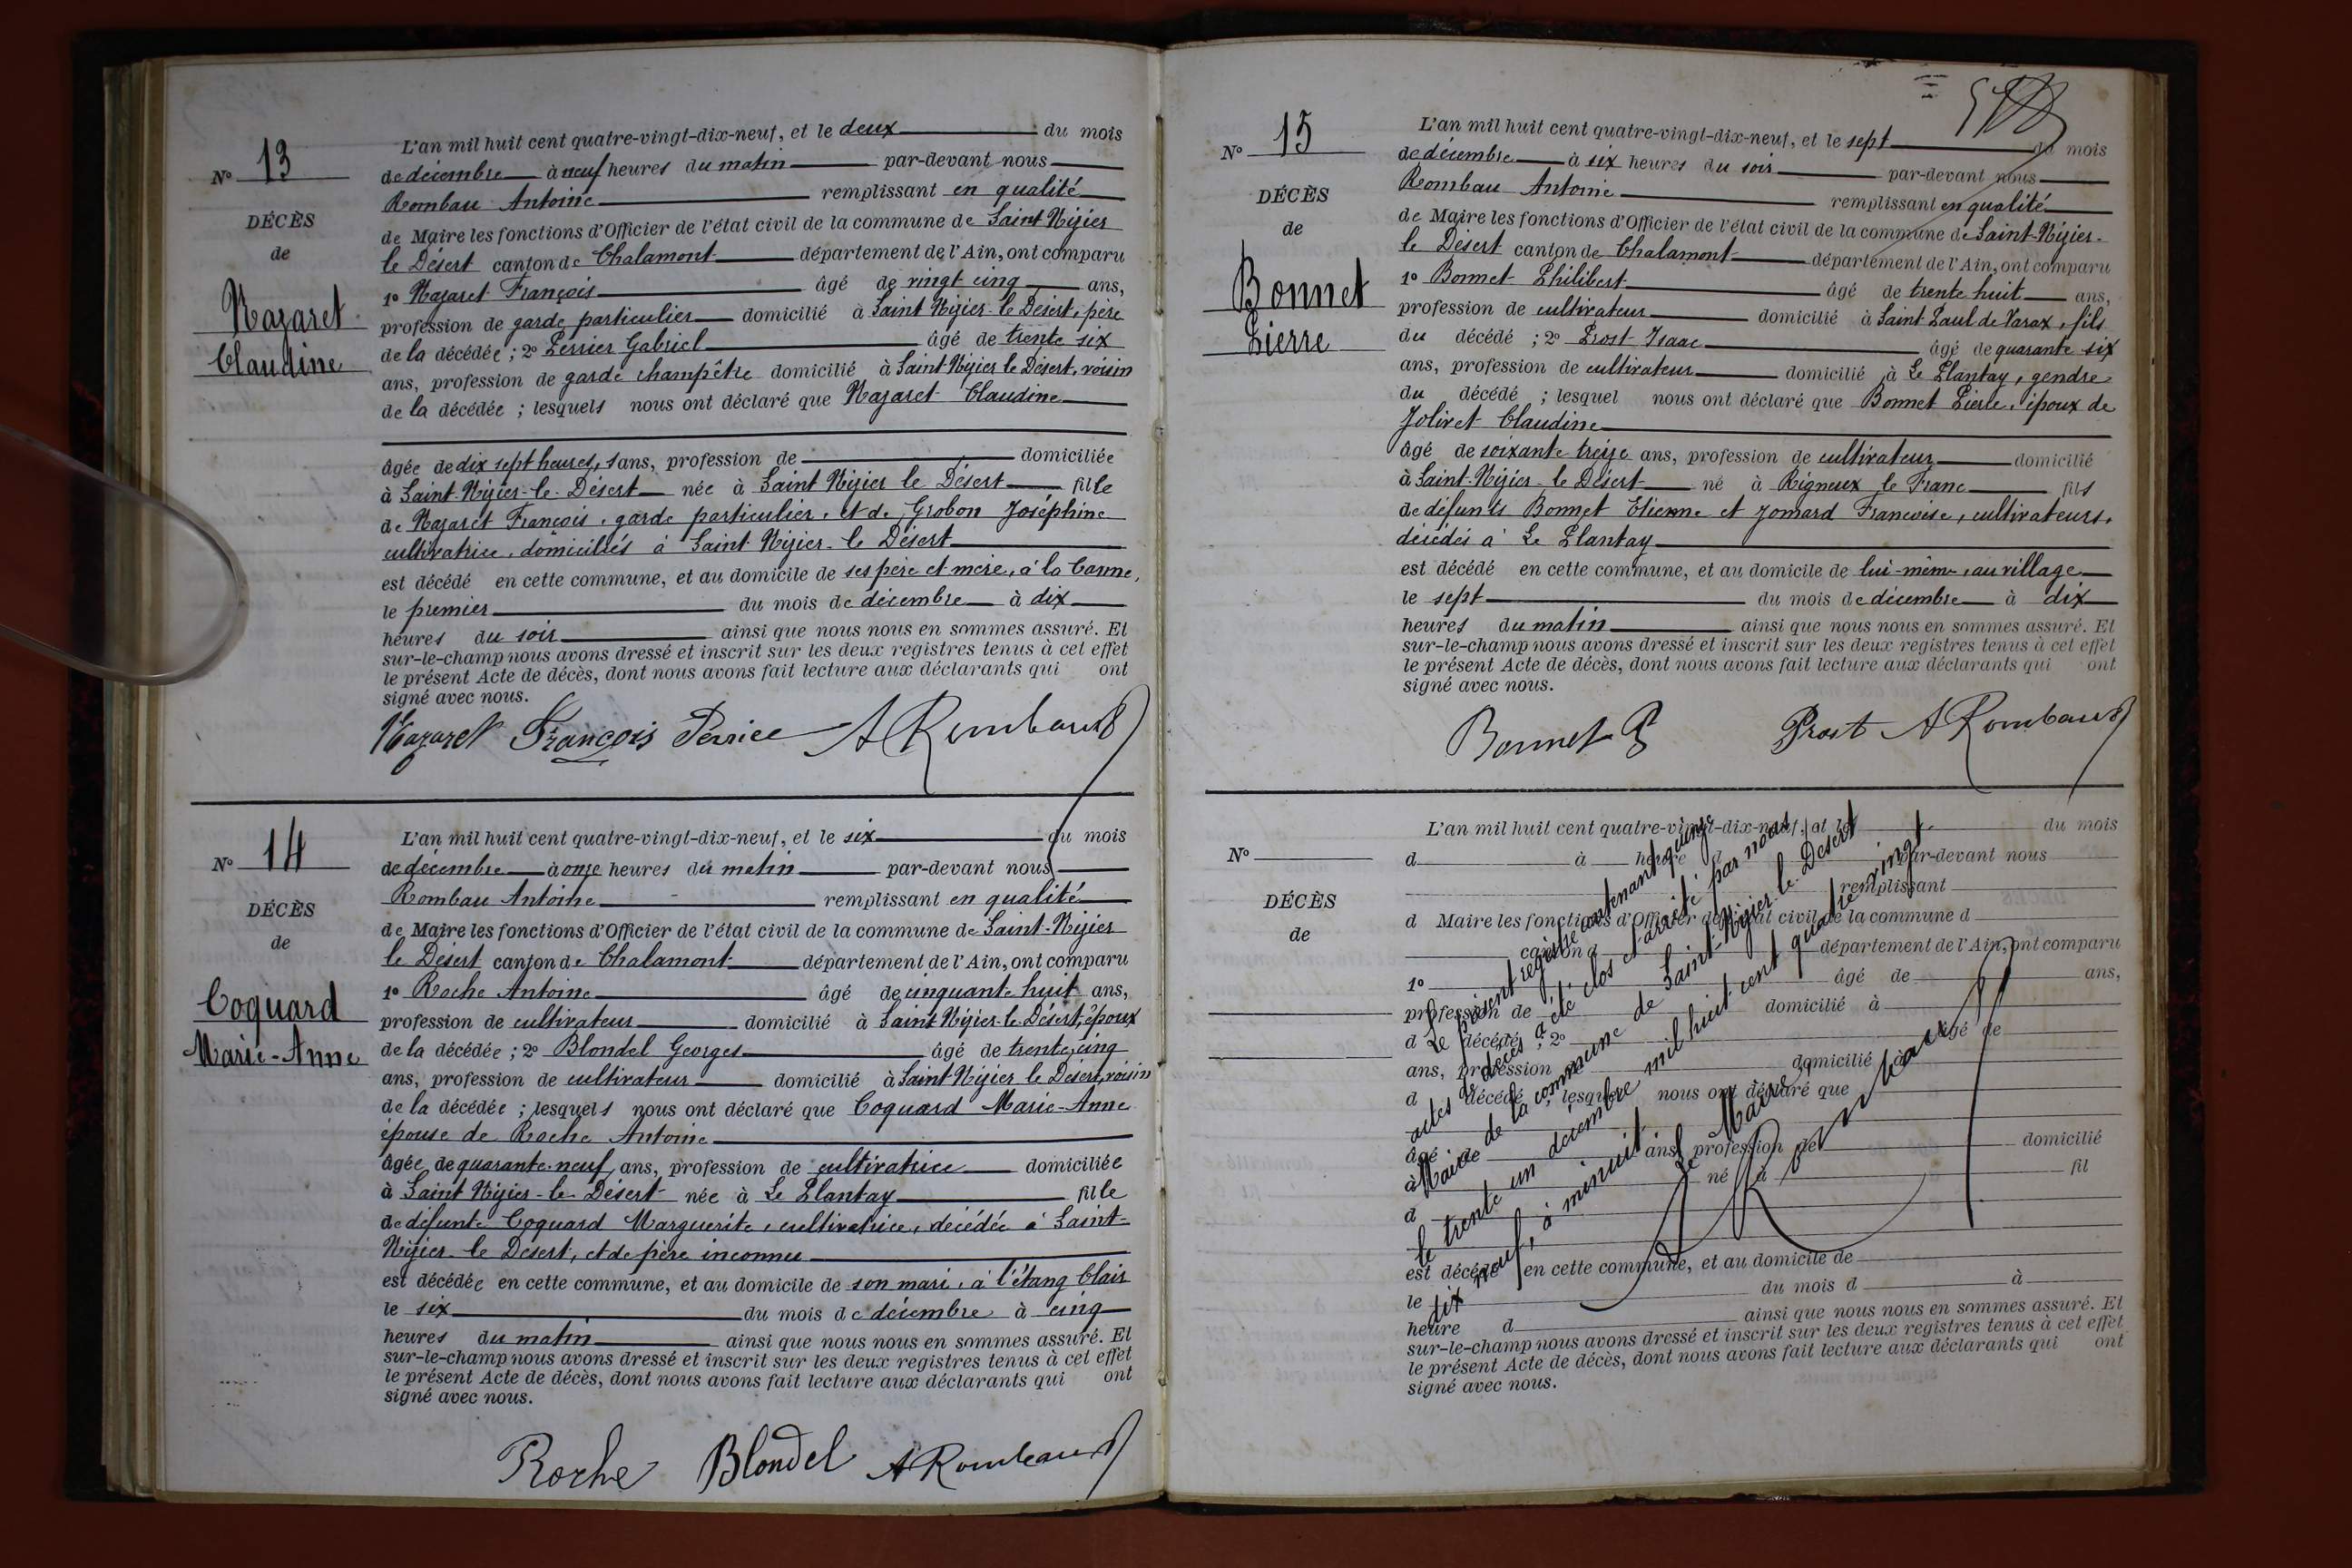 N° 13
DÉCÈS
de
Nazaret
Claudine
L'an mil huit cent quatre-vingt-dix-neuf, et le deux du mois
de décembre à neuf heures du matin par-devant nous
Rombau Antoine remplissant en qualité
de Maire les fonctions d'Officier de l'état civil de la commune de Saint Nizier
le Désert canton de Chalamont département de l'Ain, ont comparu
1° Nazaret François âgé de vingt cinq ans,
profession de garde particulier domicilié à Saint Nizier le Désert, père
de la décédée ; 2° Perrier Gabriel âgé de trente six
ans, profession de garde champêtre domicilié à Saint Nizier le Désert, voisin
de la décédée ; lesquels nous ont déclaré que Nazaret Claudine
âgée de dix sept heures, ans, profession de domiciliée
à Saint-Nizier-le-Désert née à Saint Nizier le Désert fille
de Nazaret François, garde particulier, et de Grobon Joséphine
cultivatrice, domiciliés à Saint Nizier-le Désert
est décédé en cette commune, et au domicile de ses père et mère, à la Canne,
le premier du mois de décembre à dix
heures du soir ainsi que nous nous en sommes assuré. Et
sur-le-champ nous avons dressé et inscrit sur les deux registres tenus à cet effet
le présent Acte de décès, dont nous avons fait lecture aux déclarants qui ont
signé avec nous.
Nazaret François Perrier A Rombaud
N° 14
DÉCÈS
de
Coquard
Marie-Anne
L'an mil huit cent quatre-vingt-dix-neuf, et le six du mois
de décembre à onze heures du matin par-devant nous
Rombau Antoine remplissant en qualité
de Maire les fonctions d'Officier de l'état civil de la commune de Saint-Nizier
le Désert canton de Chalamont département de l'Ain, ont comparu
1° Roche Antoine âgé de cinquante huit ans,
profession de cultivateur domicilié à Saint Nizier le Désert, époux
de la décédée ; 2° Blondel Georges âgé de trente cinq
ans, profession de cultivateur domicilié à Saint Nizier le Désert, voisin
de la décédée ; lesquels nous ont déclaré que Coquard Marie-Anne
épouse de Roche Antoine
âgée de quarante-neuf ans, profession de cultivatrice domiciliée
à Saint Nizier-le-Désert née à Le Plantay fille
de défunte Coquard Marguerite, cultivatrice, décédée à Saint-
Nizier-le Désert, et de père inconnu
est décédée en cette commune, et au domicile de son mari, à l'étang Clair
le six du mois de décembre à cinq
heures du matin ainsi que nous nous en sommes assuré. Et
sur-le-champ nous avons dressé et inscrit sur les deux registres tenus à cet effet
le présent Acte de décès, dont nous avons fait lecture aux déclarants qui ont
signé avec nous.
Roche Blondel A Rombaud
N° 15
DÉCÈS
de
Bonnet
Pierre
L'an mil huit cent quatre-vingt-dix-neuf, et le sept du mois
de décembre à six heures du soir par-devant nous
Rombau Antoine remplissant en qualité
de Maire les fonctions d'Officier de l'état civil de la commune de Saint-Nizier-
le Désert canton de Chalamont département de l'Ain, ont comparu
1° Bonnet Philibert âgé de trente huit ans,
profession de cultivateur domicilié à Saint Paul de Varax, fils
du décédé ; 2° Prost Isaac âgé de quarante six
ans, profession de cultivateur domicilié à Le Plantay, gendre
du décédé ; lesquel nous ont déclaré que Bonnet Pierre, époux de
Jolivet Claudine
âgé de soixante treize ans, profession de cultivateur domicilié
à Saint-Nizier-le Désert né à Rigneux le Franc fils
de défunts Bonnet Etienne et Jomard Francoise, cultivateurs,
décédés à Le Plantay
est décédé en cette commune, et au domicile de lui-même, au village
le sept du mois de décembre à dix
heures du matin ainsi que nous nous en sommes assuré. Et
sur-le-champ nous avons dressé et inscrit sur les deux registres tenus à cet effet
le présent Acte de décès, dont nous avons fait lecture aux déclarants qui ont
signé avec nous.
Bonnet P Prost A Rombaud
N°
DÉCÈS
de
L'an mil huit cent quatre-vingt-dix-neuf, et le du mois
d à heure d par-devant nous
remplissant
d Maire les fonctions d'Officier de l'état civil de la commune d
canton d département de l'Ain, ont comparu
1° âgé de ans,
profession de domicilié à
d décédé ; 2° âgé de
ans, profession de domicilié à
d décédé ; lesquel nous ont déclaré que
âgé de ans, profession de domicilié
à né à fil
d
est décédé en cette commune, et au domicile de
le du mois d à
heure d ainsi que nous nous en sommes assuré. Et
sur-le-champ nous avons dressé et inscrit sur les deux registres tenus à cet effet
le présent Acte de décès, dont nous avons fait lecture aux déclarants qui ont
signé avec nous.
Le présent registre contenant quinze
actes de décès a été clos et arrêté par nous
Maire de la commune de Saint-Nizier-le-Désert
le trente un décembre mil huit cent quatre vingt
dix neuf, à minuit.
Le Maire,
A Rombaud